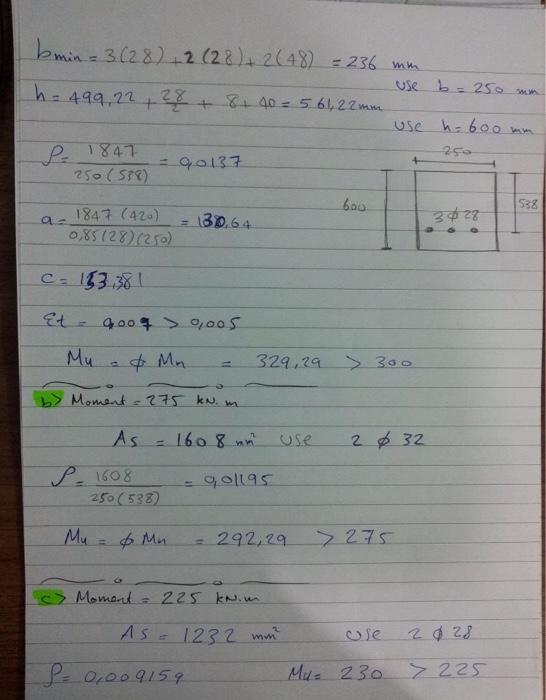 bmin = 3(28) + 2(28) + 2(48) = 236 mm
use b = 250 mm
h = 499,22 + 28/2 + 8 + 40 = 561,22 mm
use h = 600 mm
ρ = 1847 / 250(538) = 0,0137
a = 1847(420) / 0,85(28)(250) = 130,64
250
600
538
3ϕ28
c = 153,381
Et = 0,007 > 0,005
Mu = ϕ Mn = 329,29 > 300
b) Moment = 275 kN.m
As = 1608 mm² use 2 ϕ 32
ρ = 1608 / 250(538) = 0,01195
Mu = ϕ Mn = 292,29 > 275
c) Moment = 225 kN.m
As = 1232 mm² use 2 ϕ 28
ρ = 0,009159 Mu = 230 > 225